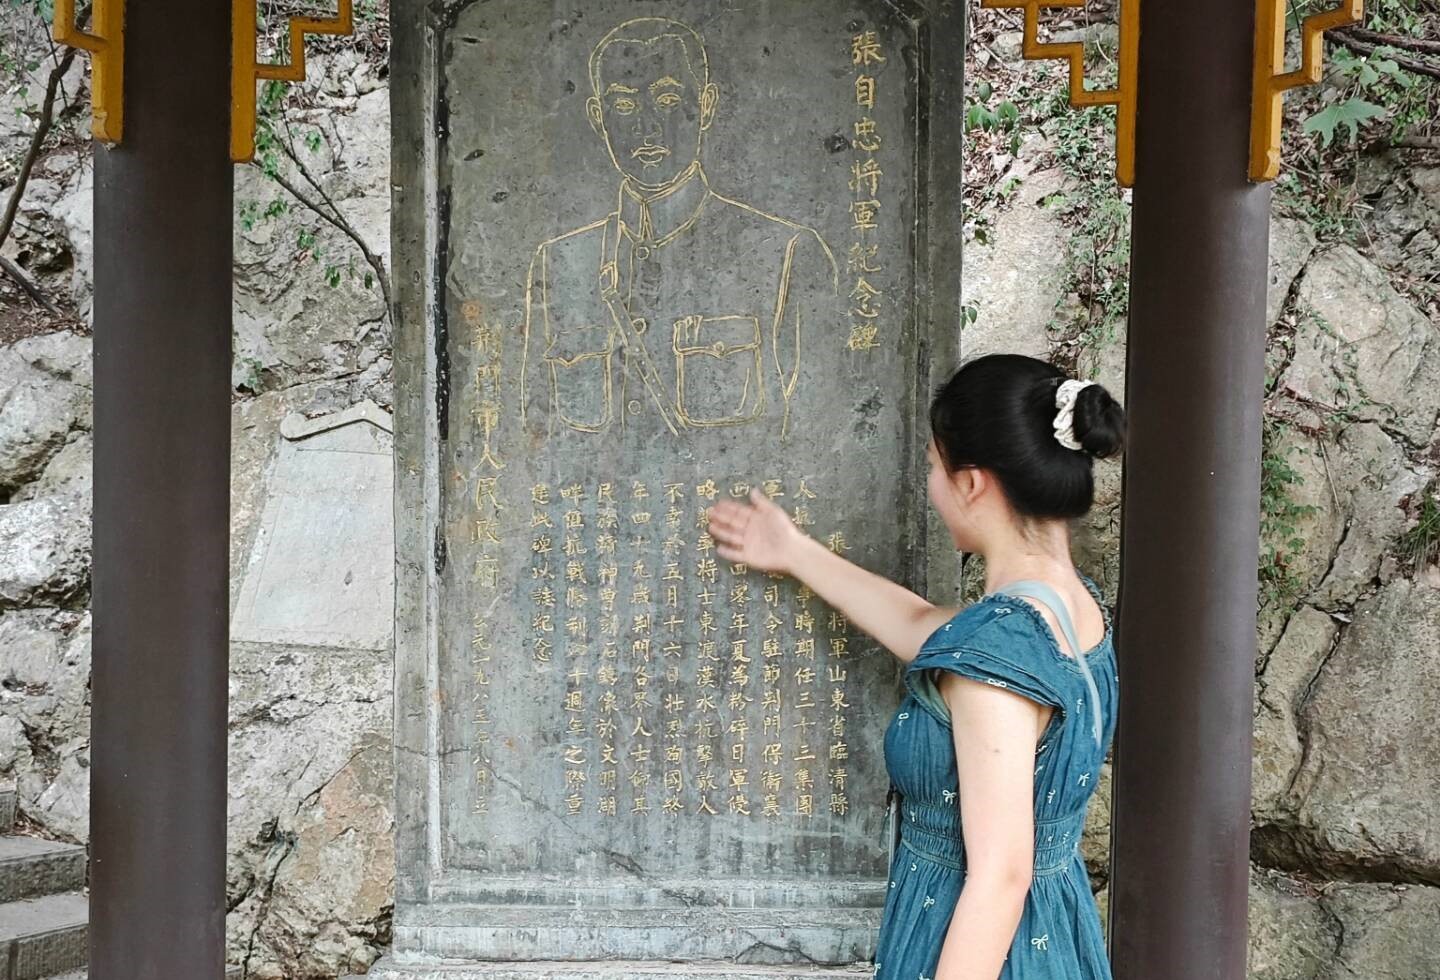 張自忠將軍紀念碑
張將軍山東省臨清縣
人抗爭時期任三十三集團
軍司令駐節荆門保衛襄
西四零年夏為粉碎日軍侵
略親率將士東渡漢水抗擊敵人
不幸於五月十六日壯烈殉國終
年四十九歲荆門各界人士仰其
民族精神曾刻石鑄像於文明湖
畔值抗戰勝利四十週年之際重
建此碑以誌紀念
荆門市人民政府 公元一九八五年八月立